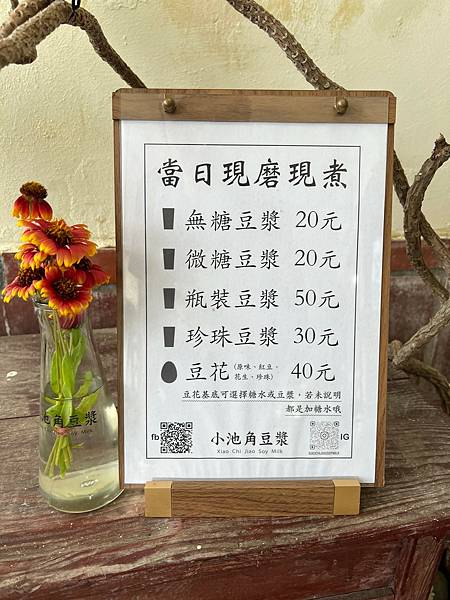 當日現磨現煮
無糖豆漿 20元
微糖豆漿 20元
瓶裝豆漿 50元
珍珠豆漿 30元
豆花(原味、紅豆、花生、珍珠) 40元
豆花基底可選擇糖水或豆漿,若未說明
都是加糖水哦
fb
小池角豆漿
Xiao Chi Jiao Soy Milk
IG
小池角豆漿
Soy Milk